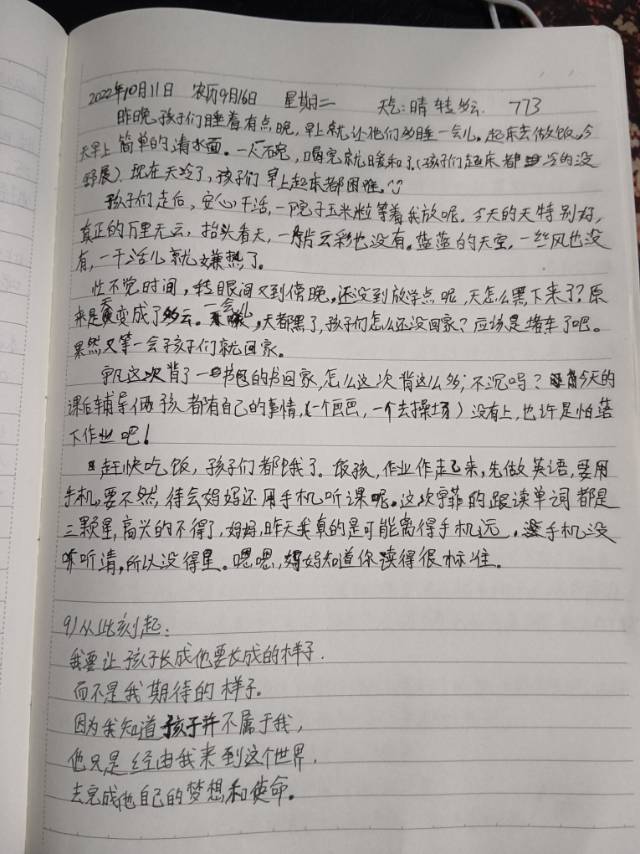 2022年10月11日 农历9月16日 星期二 天气:晴转多云 773
昨晚孩子们睡着有点晚,早上就让他们多睡一会儿。起床去做饭,今
天早上简单的清水面。一人一碗,喝完就暖和了。(孩子们起床都
野展)现在天冷了,孩子们早上起床都困难。
孩子们走后,安心干活,一院子玉米粒等着我放呢。今天的天特别好,
真正的万里无云,抬头看天,一片云彩也没有。蓝蓝的天空,一丝风也没
有,一干活儿就嫌热了。
忙不觉时间,转眼间又到傍晚。还没到放学点呢,天怎么黑下来了?原
来是变成了多云。一会儿,天都黑了,孩子们怎么还没回家?应该是堵车了吧。
果然又等一会子孩子们就回家。
宇凡这次背了一书包的书回家,怎么这次背这么多,不沉吗?今天的
课后辅导俩孩都有自己的事情,(一个画画,一个去操场)没有上,也许是怕落
下作业吧!
赶快吃饭,孩子们都饿了。饭孩,作业作走起来,先做英语,要用
手机,要不然,待会妈妈还用手机听课呢。这次宇菲的跟读单词都是
三颗星,高兴的不得了,妈妈,昨天我真的是可能离得手机远,手机没
听清,所以没得星。嗯嗯,妈妈知道你读得很标准。
9)从此刻起:
我要让孩子长成他要长成的样子.
而不是我期待的样子.
因为我知道孩子并不属于我,
他只是经由我来到这个世界.
去完成他自己的梦想和使命。